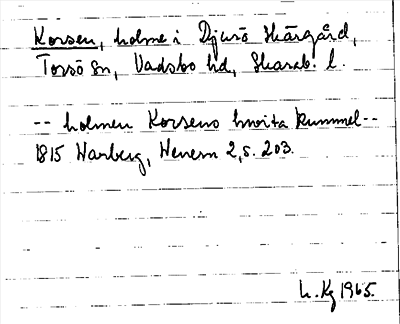 Korsen, holme i Djurö Skärgård,
Torsö Sn, Vadsbo hd, Skarab. l.
-- holmen Korsens hwita kummel --
1815 Warberg, Wenern 2, s. 203.
L. Kg 1965.